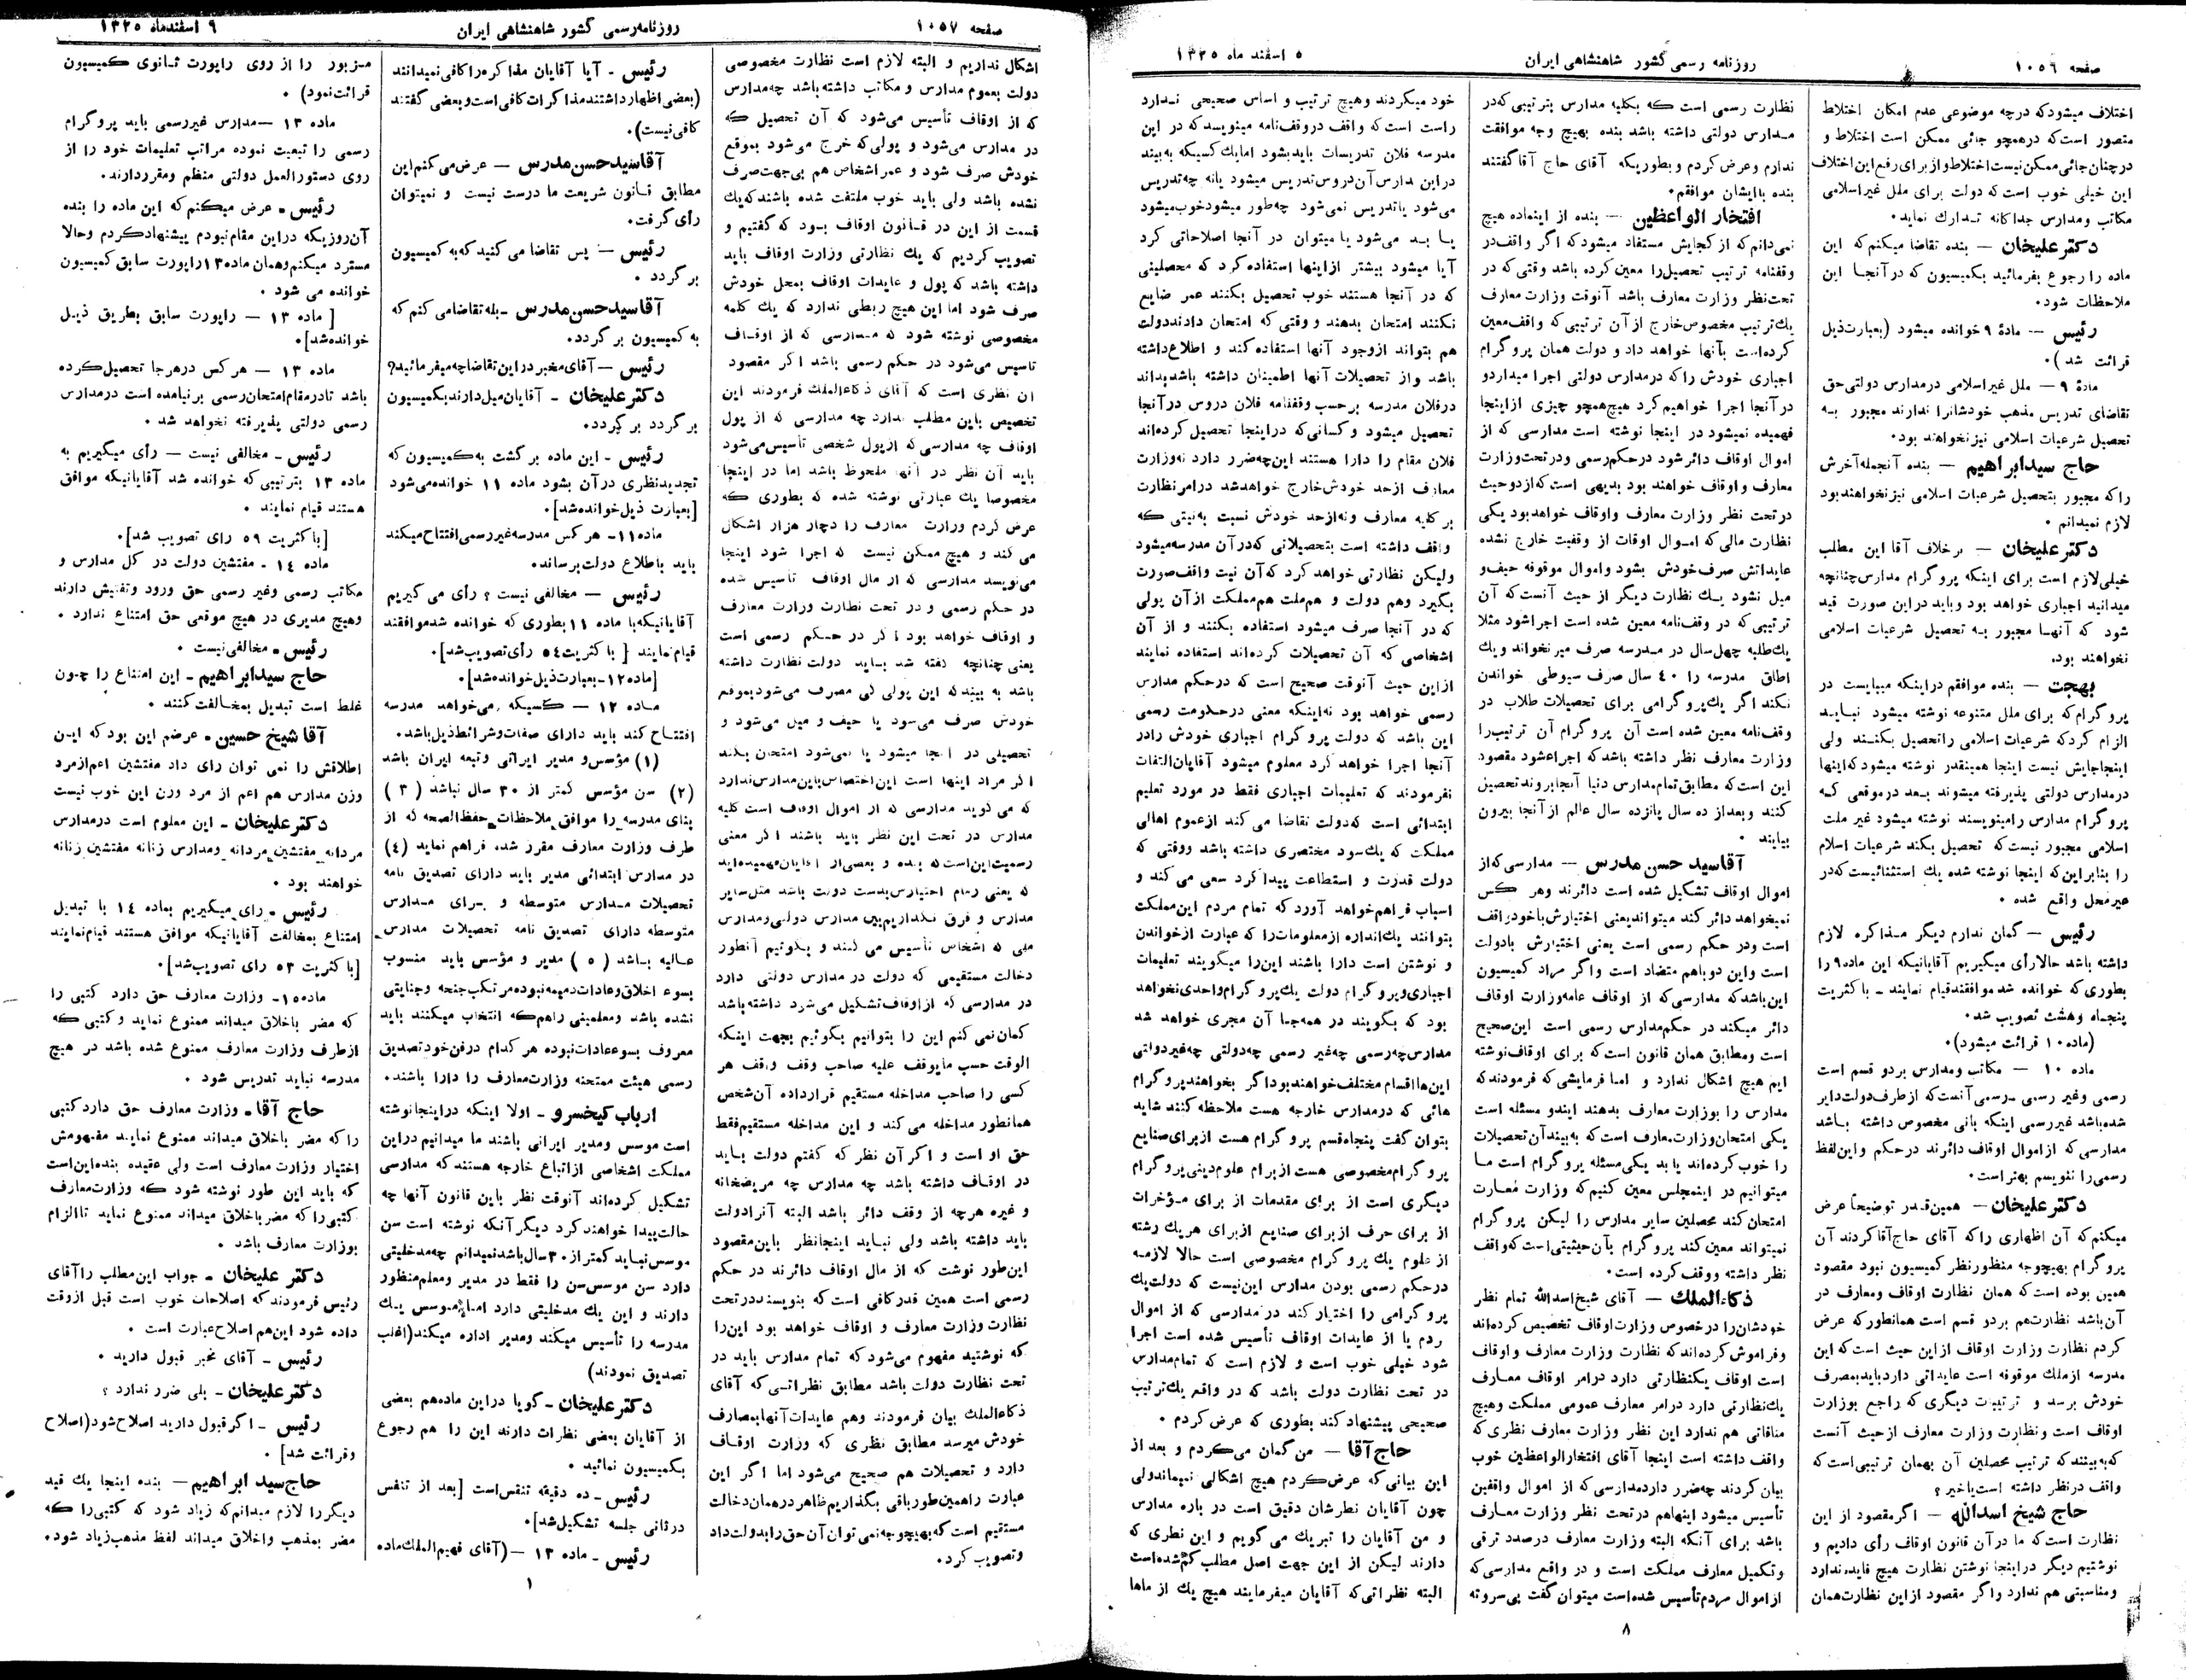 صفحه ۱۰۵۶
روزنامه رسمی کشور شاهنشاهی ایران
۵ اسفند ماه ۱۳۲۵
اختلاف میشود که درچه موضوعی عدم امکان اختلاط
متصور است که درهمچو جائی ممکن است اختلاط و
درچنان جائی ممکن نیست اختلاط و از برای رفع این اختلاف
این خیلی خوب است که دولت برای ملل غیر اسلامی
مکاتب و مدارس جداگانه تدارك نماید.
دکتر علیخان — بنده تقاضا میکنم که این
ماده را رجوع بفرمائید بکمیسیون که در آنجا این
ملاحظات شود.
رئیس — مادهٔ ۹ خوانده میشود (بعبارت ذیل
قرائت شد).
مادهٔ ۹ — ملل غیر اسلامی در مدارس دولتی حق
تقاضای تدریس مذهب خودشانرا ندارند مجبور به
تحصیل شرعیات اسلامی نیز نخواهند بود.
حاج سید ابراهیم — بنده آنجمله آخرش
را که مجبور بتحصیل شرعیات اسلامی نیز نخواهند بود
لازم نمیدانم .
دکتر علیخان — برخلاف آقا این مطلب
خیلی لازم است برای اینکه پروگرام مدارس چنانچه
میدانید اجباری خواهد بود و باید در این صورت قید
شود که آنها مجبور به تحصیل شرعیات اسلامی
نخواهند بود.
بهجت — بنده موافقم در اینکه میبایست در
پروگرام که برای ملل متنوعه نوشته میشود نباید
الزام کرد که شرعیات اسلامی را تحصیل بکنند ولی
اینجا جایش نیست اینجا همینقدر نوشته میشود که اینها
در مدارس دولتی پذیرفته میشوند بعد در موقعی که
پروگرام مدارس را مینویسند نوشته میشود غیر ملت
اسلامی مجبور نیست که تحصیل بکند شرعیات اسلام
را بنابر این که اینجا نوشته شده یك استثنائیست که در
غیر محل واقع شده .
رئیس — گمان ندارم دیگر مذاکره لازم
داشته باشد حالا رأی میگیریم آقایانیکه این ماده ۹ را
بطوری که خوانده شد موافقند قیام نمایند - با کثریت
پنجاه و هشت تصویب شد.
(ماده ۱۰ قرائت میشود).
ماده ۱۰ — مکاتب و مدارس بر دو قسم است
رسمی و غیر رسمی - رسمی آنست که از طرف دولت دایر
شده باشد غیر رسمی اینکه بانی مخصوص داشته باشد
مدارسی که از اموال اوقاف دائرند در حکم و این لفظ
رسمی را ننویسم بهتر است.
دکتر علیخان — همین قدر توضیحاً عرض
میکنم که آن اظهاری را که آقای حاج آقا کردند آن
پروگرام بهیچوجه منظور نظر کمیسیون نبود مقصود
همین بوده است که همان نظارت اوقاف و معارف در
آن باشد نظارت هم بر دو قسم است همانطور که عرض
کردم نظارت وزارت اوقاف از این حیث است که این
مدرسه از ملك موقوفه است عایداتی دارد باید بمصرف
خودش برسد و ترتیبات دیگری که راجع بوزارت
اوقاف است و نظارت وزارت معارف از حیث آنست
که به بینند که ترتیب محصلین آن بهمان ترتیبی است که
واقف در نظر داشته است یاخیر ؟
حاج شیخ اسدالله — اگر مقصود از این
نظارت است که ما در آن قانون اوقاف رأی دادیم و
نوشتیم دیگر در اینجا نوشتن نظارت هیچ فایده ندارد
و مناسبتی هم ندارد و اگر مقصود از این نظارت همان
نظارت رسمی است که بکلیه مدارس بترتیبی که در
مدارس دولتی داشته باشد بنده بهیچ وجه موافقت
ندارم و عرض کردم و بطوریکه آقای حاج آقا گفتند
بنده با ایشان موافقم.
افتخار الواعظین — بنده از اینماده هیچ
نمی دانم که از کجایش مستفاد میشود که اگر واقف در
وقفنامه ترتیب تحصیل را معین کرده باشد وقتی که در
تحت نظر وزارت معارف باشد آنوقت وزارت معارف
یك ترتیب مخصوص خارج از آن ترتیبی که واقف معین
کرده است بآنها خواهد داد و دولت همان پروگرام
اجباری خودش را که در مدارس دولتی اجرا میدارد و
در آنجا اجرا خواهیم کرد هیچ همچو چیزی از اینجا
فهمیده نمیشود در اینجا نوشته است مدارسی که از
اموال اوقاف دائر شود در حکم رسمی و در تحت وزارت
معارف و اوقاف خواهند بود بدیهی است که از دو حیث
در تحت نظر وزارت معارف و اوقاف خواهد بود یکی
نظارت مالی که اموال اوقات از وقفیت خارج نشده
عایداتش صرف خودش بشود و اموال موقوفه حیف و
میل نشود یك نظارت دیگر از حیث آنست که آن
ترتیبی که در وقف نامه معین شده است اجرا شود مثلا
یك طلبه چهل سال در مدرسه صرف میر نخواند و یك
اطاق مدرسه را ۴۰ سال صرف سیوطی خواندن
نکند اگر یك پروگرامی برای تحصیلات طلاب در
وقف نامه معین شده است آن پروگرام آن ترتیب را
وزارت معارف نظر داشته باشد که اجرا عشود مقصود
این است که مطابق تمام مدارس دنیا آنجا بروند تحصیل
کنند و بعد از ده سال پانزده سال عالم از آنجا بیرون
بیایند .
آقا سید حسن مدرس — مدارسی که از
اموال اوقاف تشکیل شده است دائرند و هر کس
نمیخواهد دائر کند میتواند یعنی اختیارش با خود واقف
است و در حکم رسمی است یعنی اختیارش با دولت
است و این دو باهم متضاد است و اگر مراد کمیسیون
این باشد که مدارسی که از اوقاف عامه وزارت اوقاف
دائر میکند در حکم مدارس رسمی است این صحیح
است و مطابق همان قانون است که برای اوقاف نوشته
ایم هیچ اشکال ندارد و اما فرمایشی که فرمودند که
مدارس را بوزارت معارف بدهند ایندو مسئله است
یکی امتحان وزارت معارف است که به بیند آن تحصیلات
را خوب کرده اند یا بد یکی مسئله پروگرام است ما
میتوانیم در اینمجلس معین کنیم که وزارت معارف
امتحان کند محصلین سایر مدارس را لیکن پروگرام
نمیتواند معین کند پروگرام بآن حیثیتی است که واقف
نظر داشته و وقف کرده است.
ذکاء الملك — آقای شیخ اسدالله تمام نظر
خودشان را در خصوص وزارت اوقاف تخصیص کرده اند
و فراموش کرده اند که نظارت وزارت معارف و اوقاف
است اوقاف یك نظارتی دارد در امر اوقاف معارف
یك نظارتی دارد در امر معارف عمومی مملکت و هیچ
منافاتی هم ندارد این نظر وزارت معارف نظری که
واقف داشته است اینجا آقای افتخار الواعظین خوب
بیان کردند چه ضرر دارد مدارسی که از اموال واقفین
تأسیس میشود اینها هم در تحت نظر وزارت معارف
باشد برای آنکه البته وزارت معارف در صدد ترقی
و تکمیل معارف مملکت است و در واقع مدارسی که
از اموال مردم تأسیس شده است میتوان گفت بی سروته
خود میکردند و هیچ ترتیب و اساس صحیحی ندارد
راست است که واقف در وقف نامه مینویسد که در این
مدرسه فلان تدریسات باید بشود اما یك کسیکه به بیند
در این مدارس آن دروس تدریس میشود یا نه چه تدریس
می شود یا تدریس نمی شود چه طور میشود خوب میشود
یا بد می شود یا میتوان در آنجا اصلاحاتی کرد
آیا میشود بیشتر از اینها استفاده کرد که محصلینی
که در آنجا هستند خوب تحصیل بکنند عمر ضایع
نکنند امتحان بدهند و وقتی که امتحان دادند دولت
هم بتواند از وجود آنها استفاده کند و اطلاع داشته
باشد و از تحصیلات آنها اطمینان داشته باشد بداند
در فلان مدرسه بر حسب وقفنامه فلان دروس در آنجا
تحصیل میشود و کسانی که در اینجا تحصیل کرده اند
فلان مقام را دارا هستند این چه ضرر دارد نه وزارت
معارف از حد خودش خارج خواهد شد در امر نظارت
بر کلیه معارف و نه از حد خودش نسبت به نیتی که
واقف داشته است بتحصیلاتی که در آن مدرسه میشود
ولیکن نظارتی خواهد کرد که آن نیت واقف صورت
بگیرد و هم دولت و هم ملت هم مملکت از آن پولی
که در آنجا صرف میشود استفاده بکنند و از آن
اشخاصی که آن تحصیلات کرده اند استفاده نمایند
از این حیث آنوقت صحیح است که در حکم مدارس
رسمی خواهد بود نه اینکه معنی در حکومت رسمی
این باشد که دولت پروگرام اجباری خودش را در
آنجا اجرا خواهد کرد معلوم میشود آقایان التفات
نفرمودند که تعلیمات اجباری فقط در مورد تعلیم
ابتدائی است که دولت تقاضا می کند از عموم اهالی
مملکت که یك سود مختصری داشته باشد و وقتی که
دولت قدرت و استطاعت پیدا کرد سعی می کند و
اسباب فراهم خواهد آورد که تمام مردم این مملکت
بتوانند یك اندازه از معلومات را که عبارت از خواندن
و نوشتن است دارا باشند این را میگویند تعلیمات
اجباری و پروگرام دولت یك پروگرام واحدی نخواهد
بود که بگویند در همه جا آن مجری خواهد شد
مدارس چه رسمی چه غیر رسمی چه دولتی چه غیر دولتی
این ها اقسام مختلف خواهند بود اگر بخواهند پروگرام
هائی که در مدارس خارجه هست ملاحظه کنند شاید
بتوان گفت پنجاه قسم پروگرام هست از برای صنایع
پروگرام مخصوصی هست از برام علوم دینی پروگرام
دیگری است از برای مقدمات از برای مؤخرات
از برای حرف از برای صنایع از برای هر یك رشته
از علوم یك پروگرام مخصوصی است حالا لازمه
در حکم رسمی بودن مدارس این نیست که دولت یك
پروگرامی را اختیار کند در مدارسی که از اموال
مردم یا از عایدات اوقاف تأسیس شده است اجرا
شود خیلی خوب است و لازم است که تمام مدارس
در تحت نظارت دولت باشد که در واقع یك ترتیب
صحیحی پیشنهاد کند بطوری که عرض کردم .
حاج آقا — من گمان می کردم و بعد از
این بیانی که عرض کردم هیچ اشکالی نمیماند ولی
چون آقایان نظرشان دقیق است در باره مدارس
و من آقایان را تبریك می گویم و این نظری که
دارند لیکن از این جهت اصل مطلب کم شده است
البته نظراتی که آقایان میفرمایند هیچ یك از ماها
۸
صفحه ۱۰۵۷
روزنامه رسمی کشور شاهنشاهی ایران
۹ اسفندماه ۱۳۲۵
اشکال نداریم و البته لازم است نظارت مخصوصی
دولت بعموم مدارس و مکاتب داشته باشد چه مدارس
که از اوقاف تأسیس می شود که آن تحصیل که
در مدارس می شود و پولی که خرج می شود بموقع
خودش صرف شود و عمر اشخاص هم بی جهت صرف
نشده باشد ولی باید خوب ملتفت شده باشند که یك
قسمت از این در قانون اوقاف بود که گفتیم و
تصویب کردیم که یك نظارتی وزارت اوقاف باید
داشته باشد که پول و عایدات اوقاف بمحل خودش
صرف شود اما این هیچ ربطی ندارد که یك کلمه
مخصوصی نوشته شود که مدارسی که از اوقاف
تاسیس می شود در حکم رسمی باشد اگر مقصود
آن نظری است که آقای ذکاء الملك فرمودند این
تخصیص باین مطلب ندارد چه مدارسی که از پول
اوقاف چه مدارسی که از پول شخصی تأسیس می شود
باید آن نظر در آنها ملحوظ باشد اما در اینجا
مخصوصا یك عبارتی نوشته شده که بطوری که
عرض کردم وزارت معارف را دچار هزار اشکال
می کند و هیچ ممکن نیست که اجرا شود اینجا
می نویسد مدارسی که از مال اوقاف تأسیس شده
در حکم رسمی و در تحت نظارت وزارت معارف
و اوقاف خواهد بود اگر در حکم رسمی است
یعنی چنانچه گفته شد باید دولت نظارت داشته
باشد به بیند که این پولی کی مصرف می شود بموقع
خودش صرف می شود یا حیف و میل می شود و
تحصیلی در آنجا میشود یا نمی شود امتحان بکند
اگر مراد اینها است این اختصاص باین مدارس ندارد
که می گوید مدارسی که از اموال اوقاف است کلیه
مدارس در تحت این نظر باید باشند اگر معنی
رسمیت این است که بنده و بعضی از آقایان فهمیده اید
که یعنی زمام اختیارش بدست دولت باشد مثل سایر
مدارس و فرق نگذاریم بین مدارس دولتی و مدارس
ملی که اشخاص تأسیس می کنند و بگوئیم آنطور
دخالت مستقیمی که دولت در مدارس دولتی دارد
در مدارسی که از اوقاف تشکیل می شود داشته باشد
گمان نمی کنم این را بتوانیم بگوئیم بجهت اینکه
الوقف حسب مایوقف علیه صاحب وقف وقف هر
کسی را صاحب مداخله مستقیم قرار داده آن شخص
همانطور مداخله می کند و این مداخله مستقیم فقط
حق او است و اگر آن نظر که گفتم دولت باید
در اوقاف داشته باشد چه مدارس چه مریضخانه
و غیره هرچه از وقف دائر باشد البته آنرا دولت
باید داشته باشد ولی نباید اینجا نظر باین مقصود
این طور نوشت که از مال اوقاف دائرند در حکم
رسمی است همین قدر کافی است که بنویسند در تحت
نظارت وزارت معارف و اوقاف خواهد بود این را
که نوشتید مفهوم می شود که تمام مدارس باید در
تحت نظارت دولت باشد مطابق نظراتی که آقای
ذکاء الملك بیان فرمودند وهم عایدات آنها بمصارف
خودش میرسد مطابق نظری که وزارت اوقاف
دارد و تحصیلات هم صحیح می شود اما اگر این
عبارت را همین طور باقی بگذاریم ظاهر در همان دخالت
مستقیم است که بهیچوجه نمی توان آن حق را بدولت داد
و تصویب کرد.
رئیس - آیا آقایان مذاکره را کافی نمیدانند
(بعضی اظهار داشتند مذاکرات کافی است و بعضی گفتند
کافی نیست).
آقا سید حسن مدرس — عرض می کنم این
مطابق قانون شریعت ما درست نیست و نمیتوان
رأی گرفت.
رئیس — پس تقاضا می کنید که به کمیسیون
برگردد .
آقا سید حسن مدرس - بله تقاضا می کنم که
به کمیسیون برگردد.
رئیس — آقای مخبر در این تقاضا چه میفرمائید؟
دکتر علیخان - آقایان میل دارند بکمیسیون
برگردد برگردد.
رئیس - این ماده برگشت به کمیسیون که
تجدید نظری در آن بشود ماده ۱۱ خوانده می شود
[بعبارت ذیل خوانده شد].
ماده ۱۱- هر کس مدرسه غیر رسمی افتتاح میکند
باید باطلاع دولت برساند.
رئیس — مخالفی نیست ؟ رأی می گیریم
آقایانیکه با ماده ۱۱ بطوری که خوانده شد موافقند
قیام نمایند [ با کثریت ۵۴ رأی تصویب شد].
[ماده ۱۲- بعبارت ذیل خوانده شد].
ماده ۱۲ — کسیکه می خواهد مدرسه
افتتاح کند باید دارای صفات و شرائط ذیل باشد.
(۱) مؤسس و مدیر ایرانی و تبعه ایران باشد
(۲) سن مؤسس کمتر از ۳۰ سال نباشد ( ۳ )
بنای مدرسه را موافق ملاحظات حفظ الصحه که از
طرف وزارت معارف مقرر شده فراهم نماید (۴)
در مدارس ابتدائی مدیر باید دارای تصدیق نامه
تحصیلات مدارس متوسطه و برای مدارس
متوسطه دارای تصدیق نامه تحصیلات مدارس
عالیه باشد ( ۵ ) مدیر و مؤسس باید منسوب
بسوء اخلاق و عادات ذمیمه نبوده مرتکب جنحه و جنایتی
نشده باشد و معلمینی را هم که انتخاب میکنند باید
معروف بسوء عادات نبوده هر کدام در فن خود تصدیق
رسمی هیئت ممتحنه وزارت معارف را دارا باشند.
ارباب کیخسرو - اولا اینکه در اینجا نوشته
است موسس و مدیر ایرانی باشند ما میدانیم در این
مملکت اشخاصی از اتباع خارجه هستند که مدارسی
تشکیل کرده اند آنوقت نظر باین قانون آنها چه
حالت پیدا خواهند کرد دیگر آنکه نوشته است سن
موسس نباید کمتر از ۳۰ سال باشد نمیدانم چه مدخلیتی
دارد سن موسس سن را فقط در مدیر و معلم منظور
دارند و این یك مدخلیتی دارد اما موسس یك
مدرسه را تأسیس میکند و مدیر اداره میکند (اغلب
تصدیق نمودند)
دکتر علیخان - گویا در این ماده هم بعضی
از آقایان بعضی نظرات دارند این را هم رجوع
بکمیسیون نمائید .
رئیس - ده دقیقه تنفس است [بعد از تنفس
در ثانی جلسه تشکیل شد].
رئیس - ماده ۱۳ — (آقای فهیم الملك ماده
مزبور را از روی راپورت ثانوی کمیسیون
قرائت نمود) .
ماده ۱۳ — مدارس غیر رسمی باید پروگرام
رسمی را تبعیت نموده مراتب تعلیمات خود را از
روی دستورالعمل دولتی منظم و مقرر دارند.
رئیس - عرض میکنم که این ماده را بنده
آن روزیکه در این مقام نبودم پیشنهاد کردم و حالا
مسترد میکنم و همان ماده ۱۳ راپورت سابق کمیسیون
خوانده می شود .
[ ماده ۱۳ — راپورت سابق بطریق ذیل
خوانده شد].
ماده ۱۳ — هر کس در هر جا تحصیل کرده
باشد تا در مقام امتحان رسمی بر نیامده است در مدارس
رسمی دولتی پذیرفته نخواهد شد .
رئیس - مخالفی نیست — رأی میگیریم به
ماده ۱۳ بترتیبی که خوانده شد آقایانیکه موافق
هستند قیام نمایند .
[با کثریت ۵۹ رای تصویب شد].
ماده ۱۴ - مفتشین دولت در کل مدارس و
مکاتب رسمی و غیر رسمی حق ورود و تفتیش دارند
و هیچ مدیری در هیچ موقعی حق امتناع ندارد .
رئیس - مخالفی نیست .
حاج سید ابراهیم - این امتناع را چون
غلط است تبدیل بمخالفت کنند .
آقا شیخ حسین - عرضم این بود که این
اطلاقش را نمی توان رای داد مفتشین اعم از مرد
و زن مدارس هم اعم از مرد و زن این خوب نیست
دکتر علیخان - این معلوم است در مدارس
مردانه مفتشین مردانه و مدارس زنانه مفتشین زنانه
خواهند بود .
رئیس - رای میگیریم بماده ۱۴ با تبدیل
امتناع بمخالفت آقایانیکه موافق هستند قیام نمایند
[با کثریت ۵۳ رای تصویب شد].
ماده ۱۵- وزارت معارف حق دارد کتبی را
که مضر باخلاق میداند ممنوع نماید و کتبی که
از طرف وزارت معارف ممنوع شده باشد در هیچ
مدرسه نباید تدریس شود .
حاج آقا - وزارت معارف حق دارد کتبی
را که مضر باخلاق میداند ممنوع نماید مفهومش
اختیار وزارت معارف است ولی عقیده بنده این است
که باید این طور نوشته شود که وزارت معارف
کتبی را که مضر باخلاق میداند ممنوع نماید تا الزام
بوزارت معارف باشد .
دکتر علیخان - جواب این مطلب را آقای
رئیس فرمودند که اصلاحات خوب است قبل از وقت
داده شود این هم اصلاح عبارت است .
رئیس - آقای مخبر قبول دارید .
دکتر علیخان - بلی ضرر ندارد ؟
رئیس - اگر قبول دارید اصلاح شود (اصلاح
و قرائت شد] .
حاج سید ابراهیم — بنده اینجا یك قید
دیگر را لازم میدانم که زیاد شود که کتبی را که
مضر بمذهب و اخلاق میداند لفظ مذهب زیاد شود.
۱